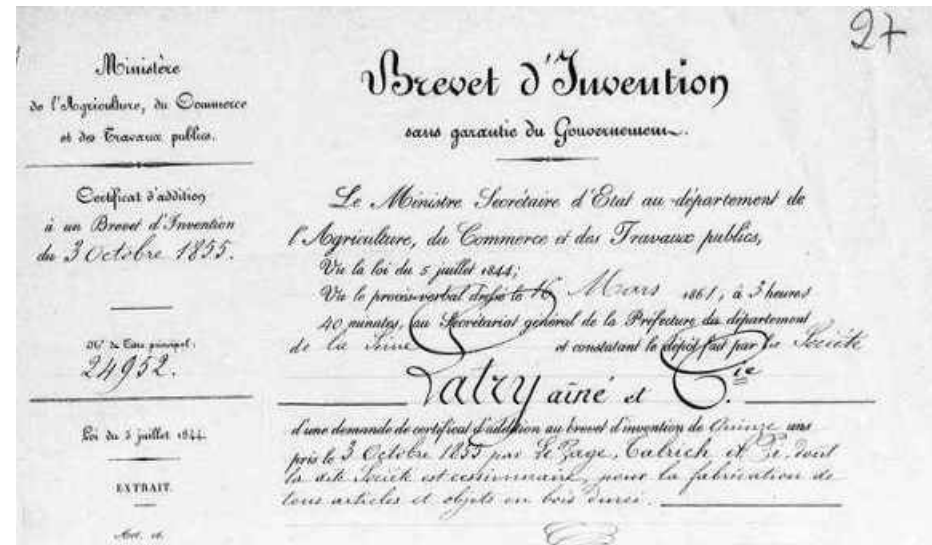 27
Ministère
de l'Agriculture, du Commerce
et des Travaux publics.
Certificat d'addition
à un Brevet d'Invention
du 3 Octobre 1855.
N° du Titre principal:
24952.
Loi du 5 juillet 1844.
EXTRAIT.
Art.
Brevet d'Invention
sans garantie du Gouvernement.
Le Ministre Secrétaire d'Etat au département de
l'Agriculture, du Commerce et des Travaux publics,
Vu la loi du 5 juillet 1844;
Vu le procès-verbal dressé le Mars 1861, à 3 heures
40 minutes, au Secrétariat général de la Préfecture du département
de la Seine et constatant le dépôt fait par la Société
Latry aîné et Cie
d'une demande de certificat d'addition au brevet d'invention de quinze ans
pris le 3 Octobre 1855 par Le Page, Talrich et dont
la dite Société est cessionnaire, pour la fabrication de
tous articles et objets en bois durci.